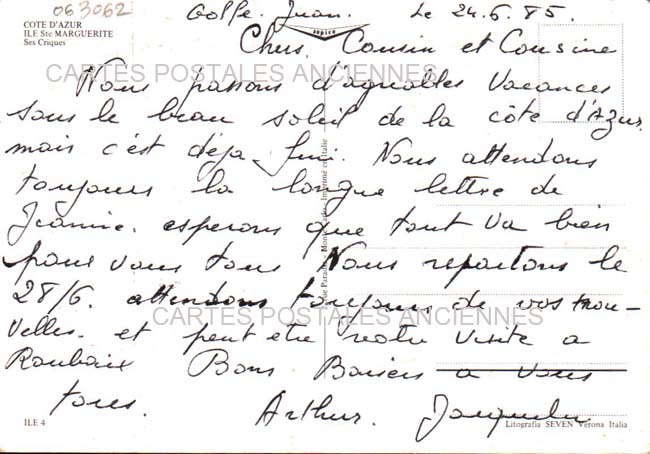 063062
Golfe. Juan. Le 24.6.85.
COTE D'AZUR
ILE Ste MARGUERITE
Ses Criques
Chers Cousin et Cousine
CARTES POSTALES ANCIENNES
Nous passons d'agréables vacances
sous le beau soleil de la côte d'Azur.
mais c'est déja fini. Nous attendons
toujours la longue lettre de
Jeannie. esperons que tout va bien
pour vous tous Nous repartons le
28/6. attendons toujours de vos nou-
CARTES POSTALES ANCIENNES
velles. et peut etre votre visite a
Roubaix Bons Baisers a vous
tous. Arthur. Jacqueline
ILE 4
Litografia SEVEN Verona Italia
Imprimé en Italie